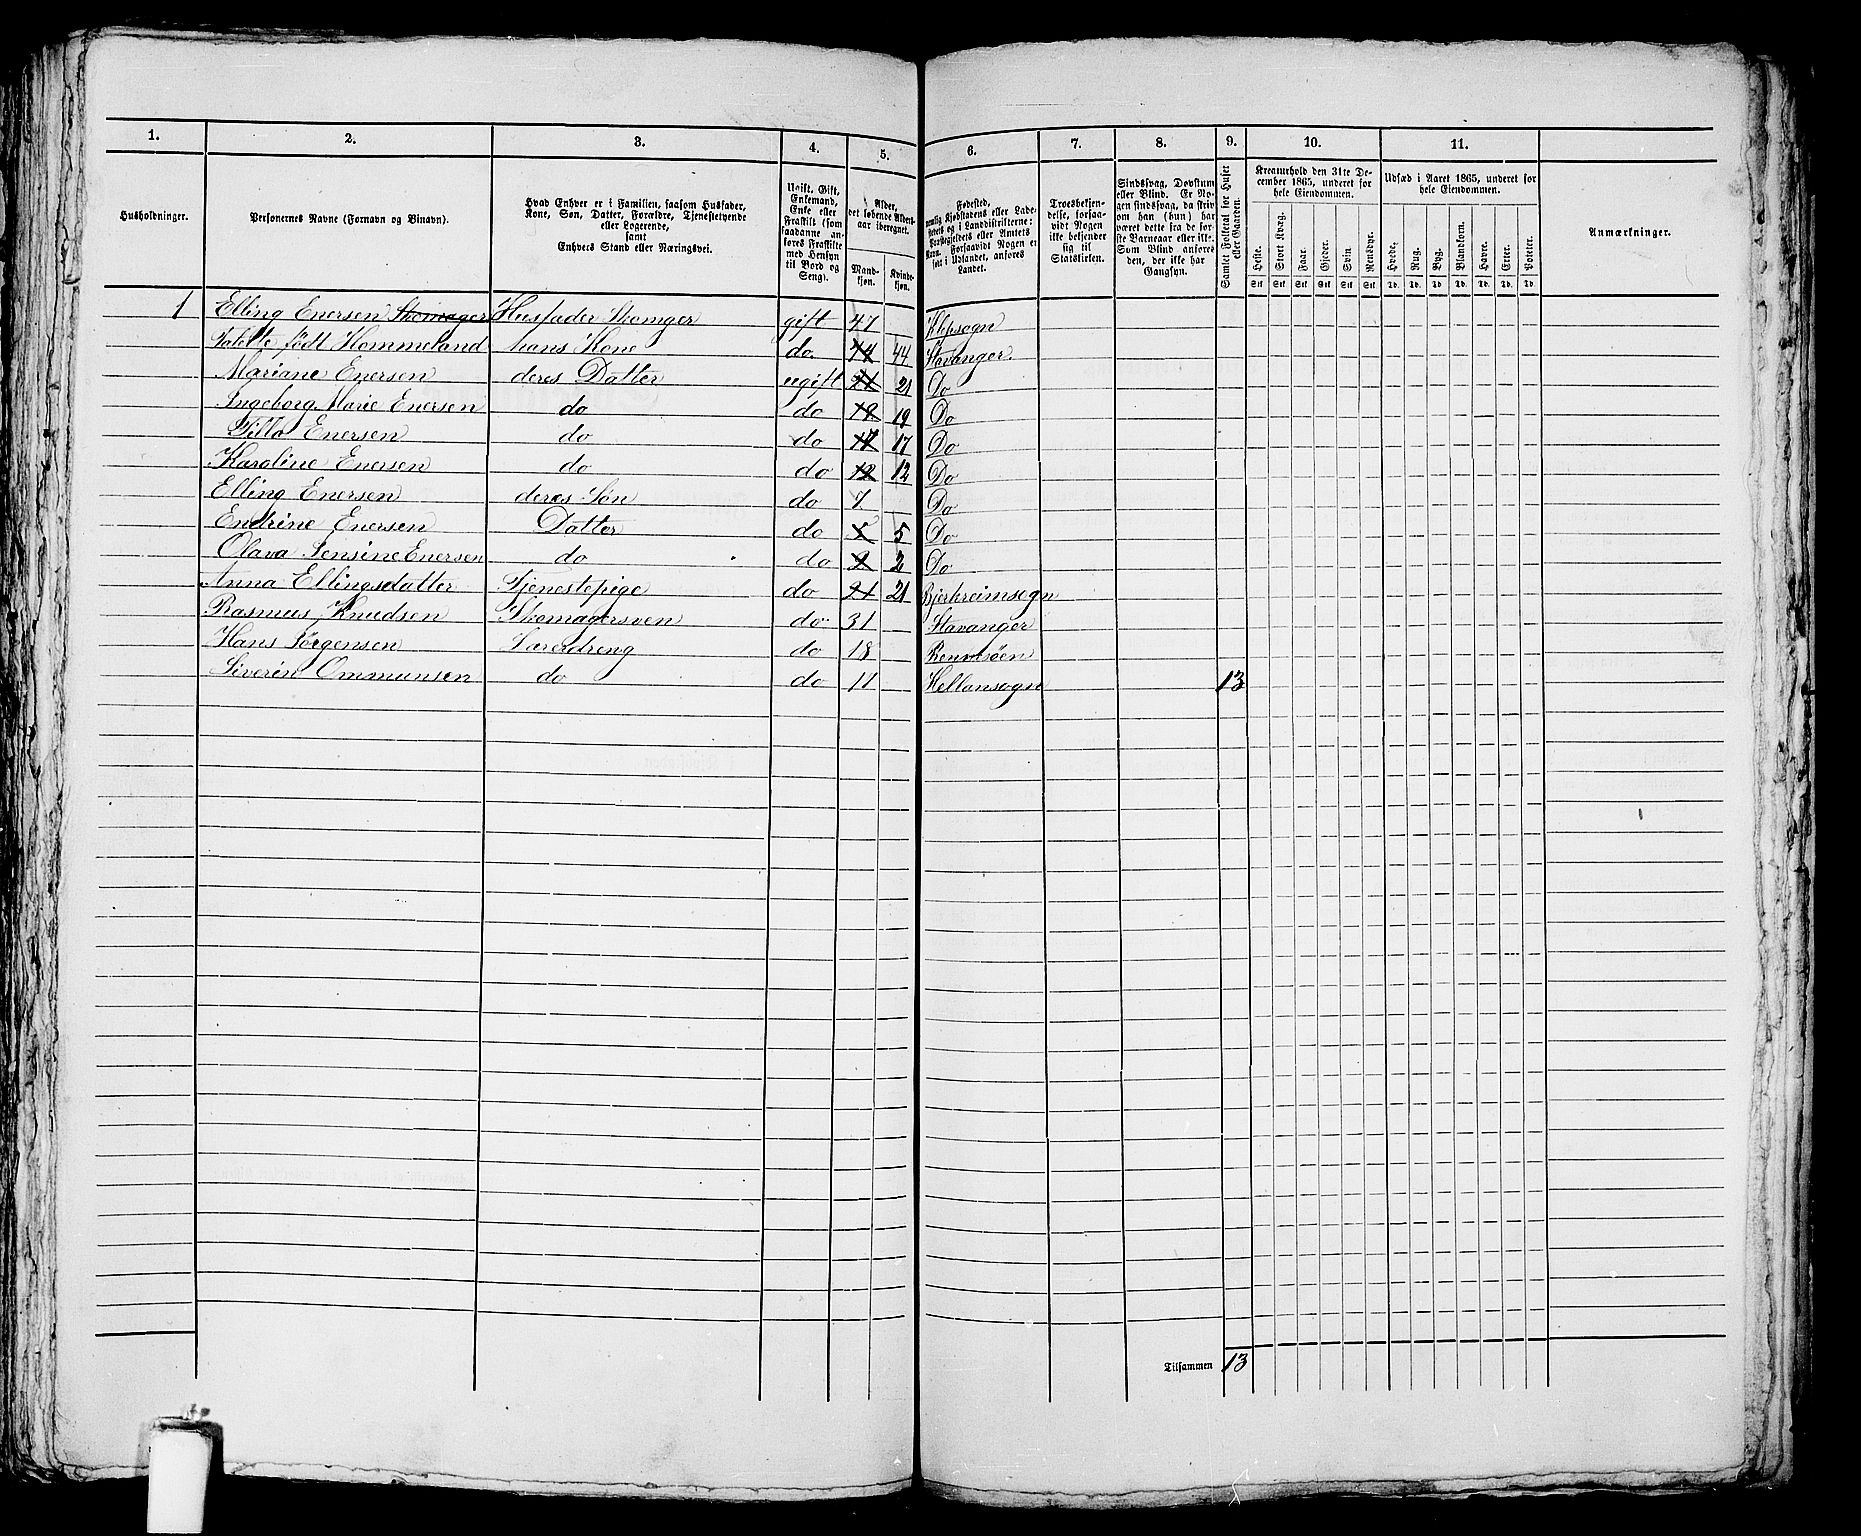 1. 2. 3. 4. 5. 6. 7. 8. 9. 10. 11.
Husholdninger.
Personernes Navne (Fornavn og Binavn).
Hvad Enhver er i Familien, saasom Husfader,
Kone, Søn, Datter, Forældre, Tjenestetyende
eller Logerende,
samt
Enhvers Stand eller Næringsvei.
Ugift, Gift,
Enkemand,
Enke eller
Fraskilt (som
saadanne an-
føres Fraskilte
med Hensyn
til Bord og
Seng).
Alder,
det løbende Alders-
aar iberegnet.
Mand-
kjøn.
Kvinde-
kjøn.
Fødested,
nemlig Kjøbstadens eller Lade-
stedets og i Landdistrikterne:
Præstegjeldets eller Amtets
Navn. Forsaavidt Nogen er
født i Udlandet, anføres
Landet.
Troesbekjen-
delse, forsaa-
vidt Nogen
ikke bekjender
sig til
Statskirken.
Sindssvag, Døvstum
eller Blind. Er No-
gen sindssvag, da skriv
om han (hun) har
været dette fra de før-
ste Barneaar eller ikke.
Som Blind anføres
den, der ikke har
Gangsyn.
Samlet Folketal for Huset
eller Gaarden.
Kreaturhold den 31te De-
cember 1865, underet for
hele Eiendommen.
Heste. Stort Kvæg. Faar. Gjeder. Svin. Rensdyr.
Stk Stk Stk Stk Stk Stk
Udsæd i Aaret 1865, underet for
hele Eiendommen.
Hvede. Rug. Byg. Blandkorn. Havre. Erter. Poteter.
Td. Td. Td. Td. Td. Td. Td.
Anmærkninger.
1 Elling Enersen Skomager Husfader Skomger gift 47 Klepsogn
født Hommeland hans Kone do. 44 44 Stavanger.
Mariane Enersen deres Datter ugift 21 21 Do
Ingeborg Marie Enersen do do 19 19 Do
Enersen do do 17 17 Do
Karoline Enersen do do 12 12 Do
Elling Enersen deres Søn do 7 Do
Endrine Enersen Datter do 5 5 Do
Olava Jensine Enersen do do 2 2 Do
Anna Ellingsdatter Tjenestepige do 21 21 Bjerkreimsogn
Rasmus Knudsen Skomagersven do 31 Stavanger
Hans Jørgensen Læredreng do 18 Rennesøen
Siverin Ommunsen do do 11 Hellansogn 13
Tilsammen 13